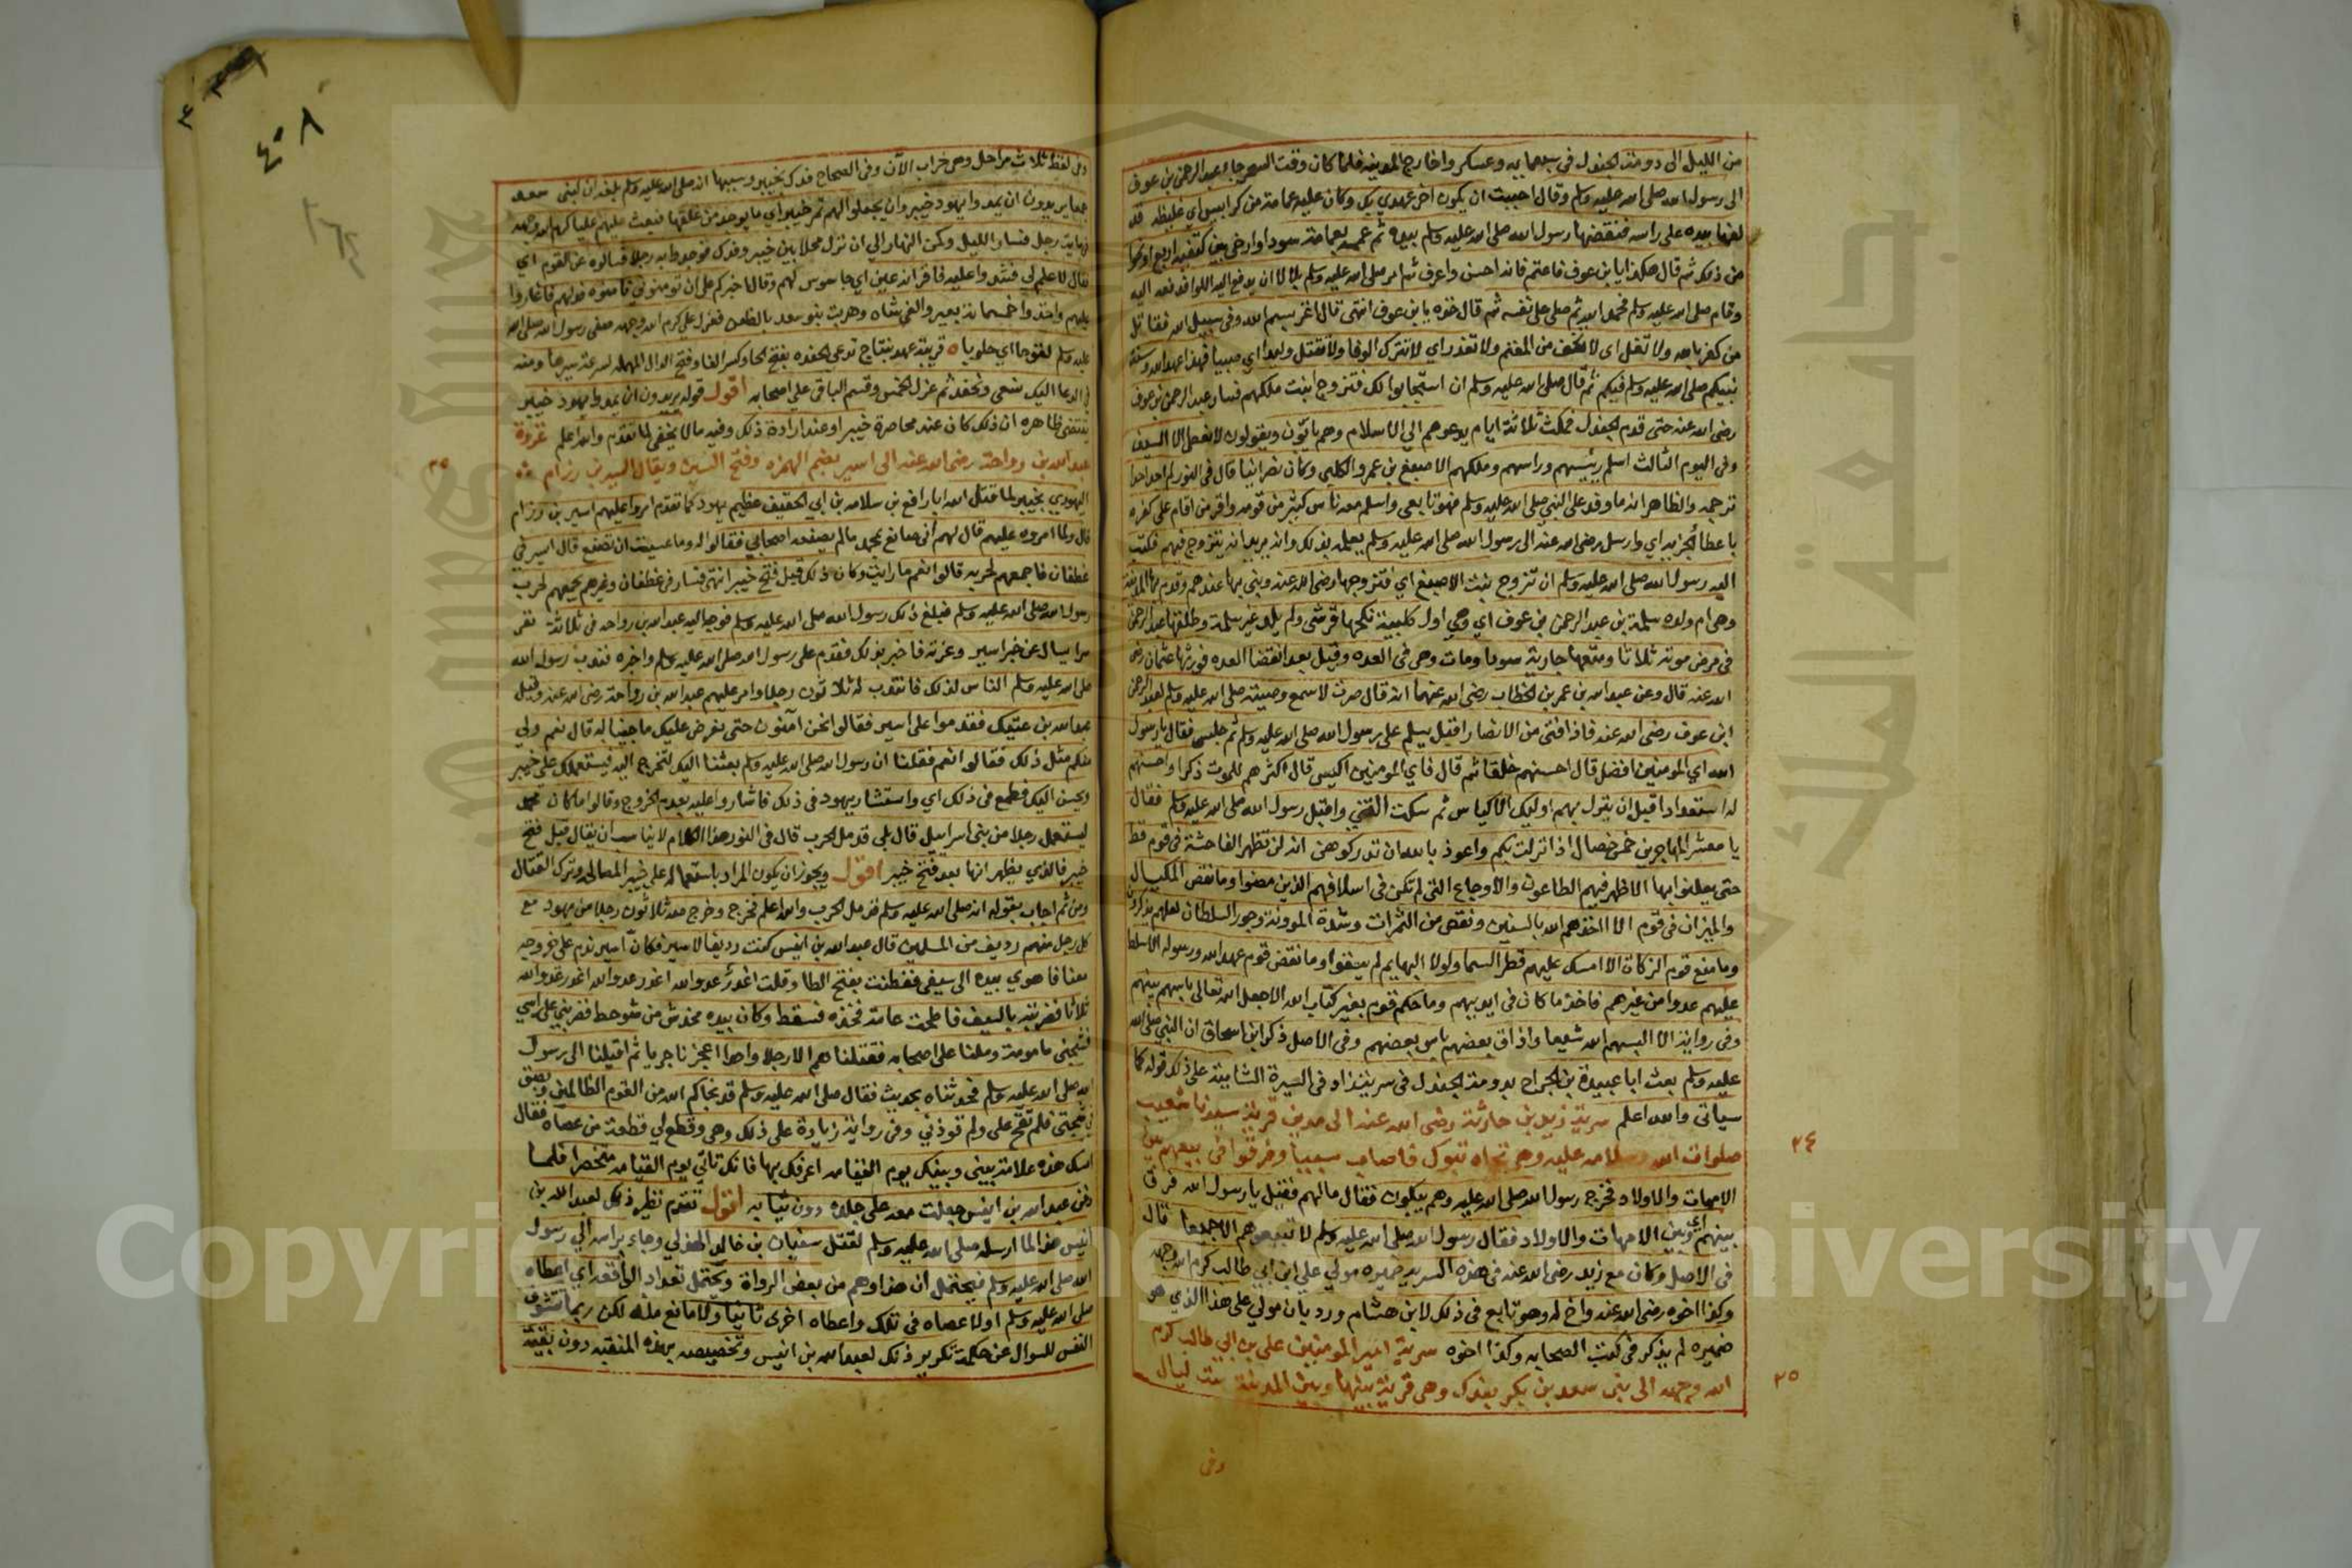 من الليل الى دومة الجندل في سبعماية وعسكروا خارج المدينة فلما كان وقت السحر جاء عبد الرحمن بن عوف
الى رسول الله صلى الله عليه وسلم وقال احببت ان يكون اخر عهدي بك وكان عليه عمامة من كرابيس اي غليظة قد
لفها بيده على راسه فنقضها رسول الله صلى الله عليه وسلم بيده ثم عممه بعمامة سودا وارخى بين كتفيه اربع اصابع او نحوا
من ذلك ثم قال هكذا يا بن عوف فاعتم فانه احسن واعرف ثم امر صلى الله عليه وسلم بلالا ان يدفع اليه اللوا فدفعه اليه
وقام صلى الله عليه وسلم فحمد الله ثم صلى على نفسه ثم قال خذه يا بن عوف انتهى قال اغز بسم الله وفي سبيل الله فقاتل
من كفر بالله ولا تغل اي لا تخف من المغنم ولا تغدر اي لا تترك الوفا ولا تقتل وليدا اي صبيا فهذا عهد الله وسنة
نبيكم صلى الله عليه وسلم فيكم ثم قال صلى الله عليه وسلم ان استجابوا لك فتزوج ابنت ملكهم فسار عبد الرحمن بن عوف
رضى الله عنه حتى قدم الجندل فمكث ثلاثة ايام يدعوهم الى الاسلام وهم يابون ويقولون لا نعطى الا السيف
وفي اليوم الثالث اسلم رييسهم وراسهم وملكهم الاصبغ بن عمرو الكلبي وكان نصرانيا قال في النور لم اجد احدا
ترجمه والظاهر انه ما وفد على النبي صلى الله عليه وسلم فهو تابعي واسلم معه ناس كثير من قومه واقر من اقام على كفره
باعطا الجزيه اي وارسل رضى الله عنه الى رسول الله صلى الله عليه وسلم يعلمه بذلك وانه يريد ان يتزوج فيهم فكتب
اليه رسول الله صلى الله عليه وسلم ان تزوج بنت الاصبغ اي فتزوجها رضى الله عنه وبنى بها عندهم وقدم بها المدينة
وهي ام ولده سلمة بن عبد الرحمن بن عوف اي وهي اول كلبية نكحها قرشى ولم يلد غير سلمة وطلقها عبد الرحمن
في مرض موته ثلاثا ومتعها جارية سودا ومات وهى في العده وقيل بعد انقضا العده فورثها عثمان رضى
الله عنه قال وعن عبد الله بن عمر بن الخطاب رضى الله عنهما انه قال صرت لاسمع وصيته صلى الله عليه وسلم لعبد الرحمن
ابن عوف رضى الله عنه فاذا فتى من الانصار اقبل يسلم على رسول الله صلى الله عليه وسلم ثم جلس فقال يا رسول
الله اي المومنين افضل قال احسنهم خلقا ثم قال فاي المومنين اكيس قال اكثرهم للموت ذكرا واحسنهم
له استعدادا قبل ان ينزل بهم اوليك الاكياس ثم سكت الفتي واقبل رسول الله صلى الله عليه وسلم فقال
يا معشر المهاجرين خمس خصال اذا نزلت بكم واعوذ بالله ان تدركوهن انه لن تظهر الفاحشة في قوم قط
حتى يعلنوا بها الا ظهر فيهم الطاعون والاوجاع التى لم تكن في اسلافهم الذين مضوا وما نقض المكيال
والميزان في قوم الا اخذهم الله بالسنين ونقص من الثمرات وشدة الموونة وجور السلطان لعلهم يذكرون
وما منع قوم الزكاة الا امسك عليهم قطر السما ولولا البهايم لم يسقوا وما نقض قوم عهد الله ورسوله الا سلط
عليهم عدوا من غيرهم فاخذ ما كان في ايديهم وما حكم قوم بغير كتاب الله الا جعل الله تعالى باسهم بينهم
وفي رواية الا البسهم الله شيعا واذاق بعضهم باس بعضهم وفي الاصل ذكر ابن اسحاق ان النبي صلى الله
عليه وسلم بعث ابا عبيدة بن الجراح بدومة الجندل في سرية زاد في السيرة الشامية على ذلك قوله كما
سياتى والله اعلم سرية زيد بن حارثة رضى الله عنه الى مدين قرية سيدنا شعيب
صلوات الله وسلامه عليه وهي تجاه تبوك فاصاب سبيا وفرقوا في بيعهم بين
الامهات والاولاد فخرج رسول الله صلى الله عليه وهم يبكون فقال مالهم فقيل يا رسول الله فرق
بينهم اي بين الامهات والاولاد فقال رسول الله صلى الله عليه وسلم لا تبيعوهم الا جميعا قال
في الاصل وكان مع زيد رضى الله عنه في هذه السرية ضميره مولي علي ابن ابي طالب كرم الله وجهه
وكذا اخوه رضى الله عنه واخ له وهو تابع في ذلك لابن هشام ورد بان مولي على هذا الذي هو
ضميره لم يذكر في كتب الصحابه وكذا اخوه سرية امير المومنين على بن ابي طالب كرم
الله وجهه الى بنى سعد بن بكر بفدك وهى قرية بينها وبين المدينة ست ليال
٢٤
٢٥
وفي
٤٠٨
وفي لفظ ثلاث مراحل وهي خراب الآن وفي الصحاح فدك بخيبر وسببها انه صلى الله عليه وسلم بلغه ان لبنى سعد
جمعا يريدون ان يمدوا يهود خيبر وان يجعلوا لهم تمر خيبر اي ما يوجد من غلتها فبعث عليهم عليا كرم الله وجهه
في ماية رجل فسار الليل وكمن النهار الي ان نزل محلا بين خيبر وفدك فوجدوا به رجلا فسالوه عن القوم اي
فقال لا علم لي فشدوا عليه فاقر انه عين اي جاسوس لهم وقال اخبركم على ان تومنوني فامنوه فدلهم فاغاروا
عليهم واخذوا خمسماية بعير والفى شاه وهربت بنو سعد بالظعن فعزل علي كرم الله وجهه صفى رسول الله صلى الله
عليه وسلم لقوحا اي حلوبا قريبة عهد بنتاج تدعي الحفده بفتح الحا وكسر الفا وفتح الدال المهمله لسرعة سيرها ومنه
في الدعا اليك نسعى ونحفد ثم عزل الخمس وقسم الباقى علي اصحابه اقول قوله يريدون ان يمدوا يهود خيبر
يقتضى ظاهره ان ذلك كان عند محاصرة خيبر او عند ارادة ذلك وفيه ما لا يخفى لما تقدم والله اعلم غزوة
عبد الله بن رواحة رضى الله عنه الى اسير بضم الهمزه وفتح السين ويقال اليسير بن رزام
٢٥
اليهودي بخيبر لما قتل الله ابا رافع بن سلام بن ابي الحقيق عظيم يهود كما تقدم امروا عليهم اسير بن رزام
قال ولما امروه عليهم قال لهم انى صانع بمحمد مالم يصنعه اصحابي فقالوا له وما عسيت ان تصنع قال اسير في
غطفان فاجمعهم لحربه قالوا نعم ما رايت وكان ذلك قبل فتح خيبر انتهى فسار في غطفان وغيرهم يجمعهم لحرب
رسول الله صلى الله عليه وسلم فبلغ ذلك رسول الله صلى الله عليه وسلم فوجه اليه عبد الله بن رواحه في ثلاثة نفر
سرا يسال عن خبر اسير وغرته فاخبر بذلك فقدم على رسول الله صلى الله عليه وسلم واخبره فندب رسول الله
صلى الله عليه وسلم الناس لذلك فانتدب له ثلاثون رجلا وامر عليهم عبد الله بن رواحة رضى الله عنه وقيل
عبد الله بن عتيك فقدموا على اسير فقالوا نحن آمنون حتى نعرض عليك ما جينا له قال نعم ولي
منكم مثل ذلك فقالوا نعم فقلنا ان رسول الله صلى الله عليه وسلم بعثنا اليك لتخرج اليه فيستعملك على خيبر
ويحسن اليك فطمع في ذلك اي واستشار يهود في ذلك فاشاروا عليه بعدم الخروج وقالوا ما كان محمد
يستعمل رجلا من بنى اسراييل قال بلى قد مل الحرب قال في النور هذا الكلام لا يناسب ان يقال قبل فتح
خيبر فالذي يظهر انها بعد فتح خيبر اقول ويجوز ان يكون المراد باستعماله على خيبر المصالحة وترك القتال
ومن ثم اجاب بقوله انه صلى الله عليه وسلم قد مل الحرب والله اعلم فخرج وخرج معه ثلاثون رجلا من يهود مع
كل رجل منهم رديف من المسلمين قال عبد الله بن انيس كنت رديفا لاسير فكأن اسير ندم على خروجه
معنا فاهوي بيده الى سيفى ففطنت بفتح الطا وقلت اغدر عدو الله اغدر عدو الله اغدر عدو الله
ثلاثا فضربته بالسيف فاطحت عامة فخذه فسقط وكان بيده مخدش من شوحط فضربني على راسي
فشجنى مامومة وملنا على اصحابه فقتلناهم الا رجلا واحدا اعجزنا جريا ثم اقبلنا الى رسول
الله صلى الله عليه وسلم فحدثناه بحديث فقال صلى الله عليه وسلم قد نجاكم الله من القوم الظالمين وبصق
في شجتى فلم تقح على ولم توذني وفي رواية زيادة على ذلك وهي وقطع لي قطعة من عصاه فقال
امسك هذه علامة بينى وبينك يوم القيامه اعرفك بها فانك تاتي يوم القيامه متخصرا فلما
دفن عبد الله بن انيس جعلت معه على جلده دون ثيابه اقول تقدم نظير ذلك لعبد الله بن
انيس هذا لما ارسله صلى الله عليه وسلم لقتل سفيان بن خالد الهذلي وجاء براسه الي رسول
الله صلى الله عليه وسلم فيحتمل ان هذا وهم من بعض الرواة ويحتمل تعداد الواقعة اي اعطاه
صلى الله عليه وسلم اولا عصاه في تلك واعطاه اخرى ثانيا ولا مانع منه لكن ربما تتشوف
النفس للسوال عن حكمة تكرير ذلك لعبد الله بن انيس وتخصيصه بهذه المنقبه دون بقية
جامعة الملك سعود
Copyright © King Saud University